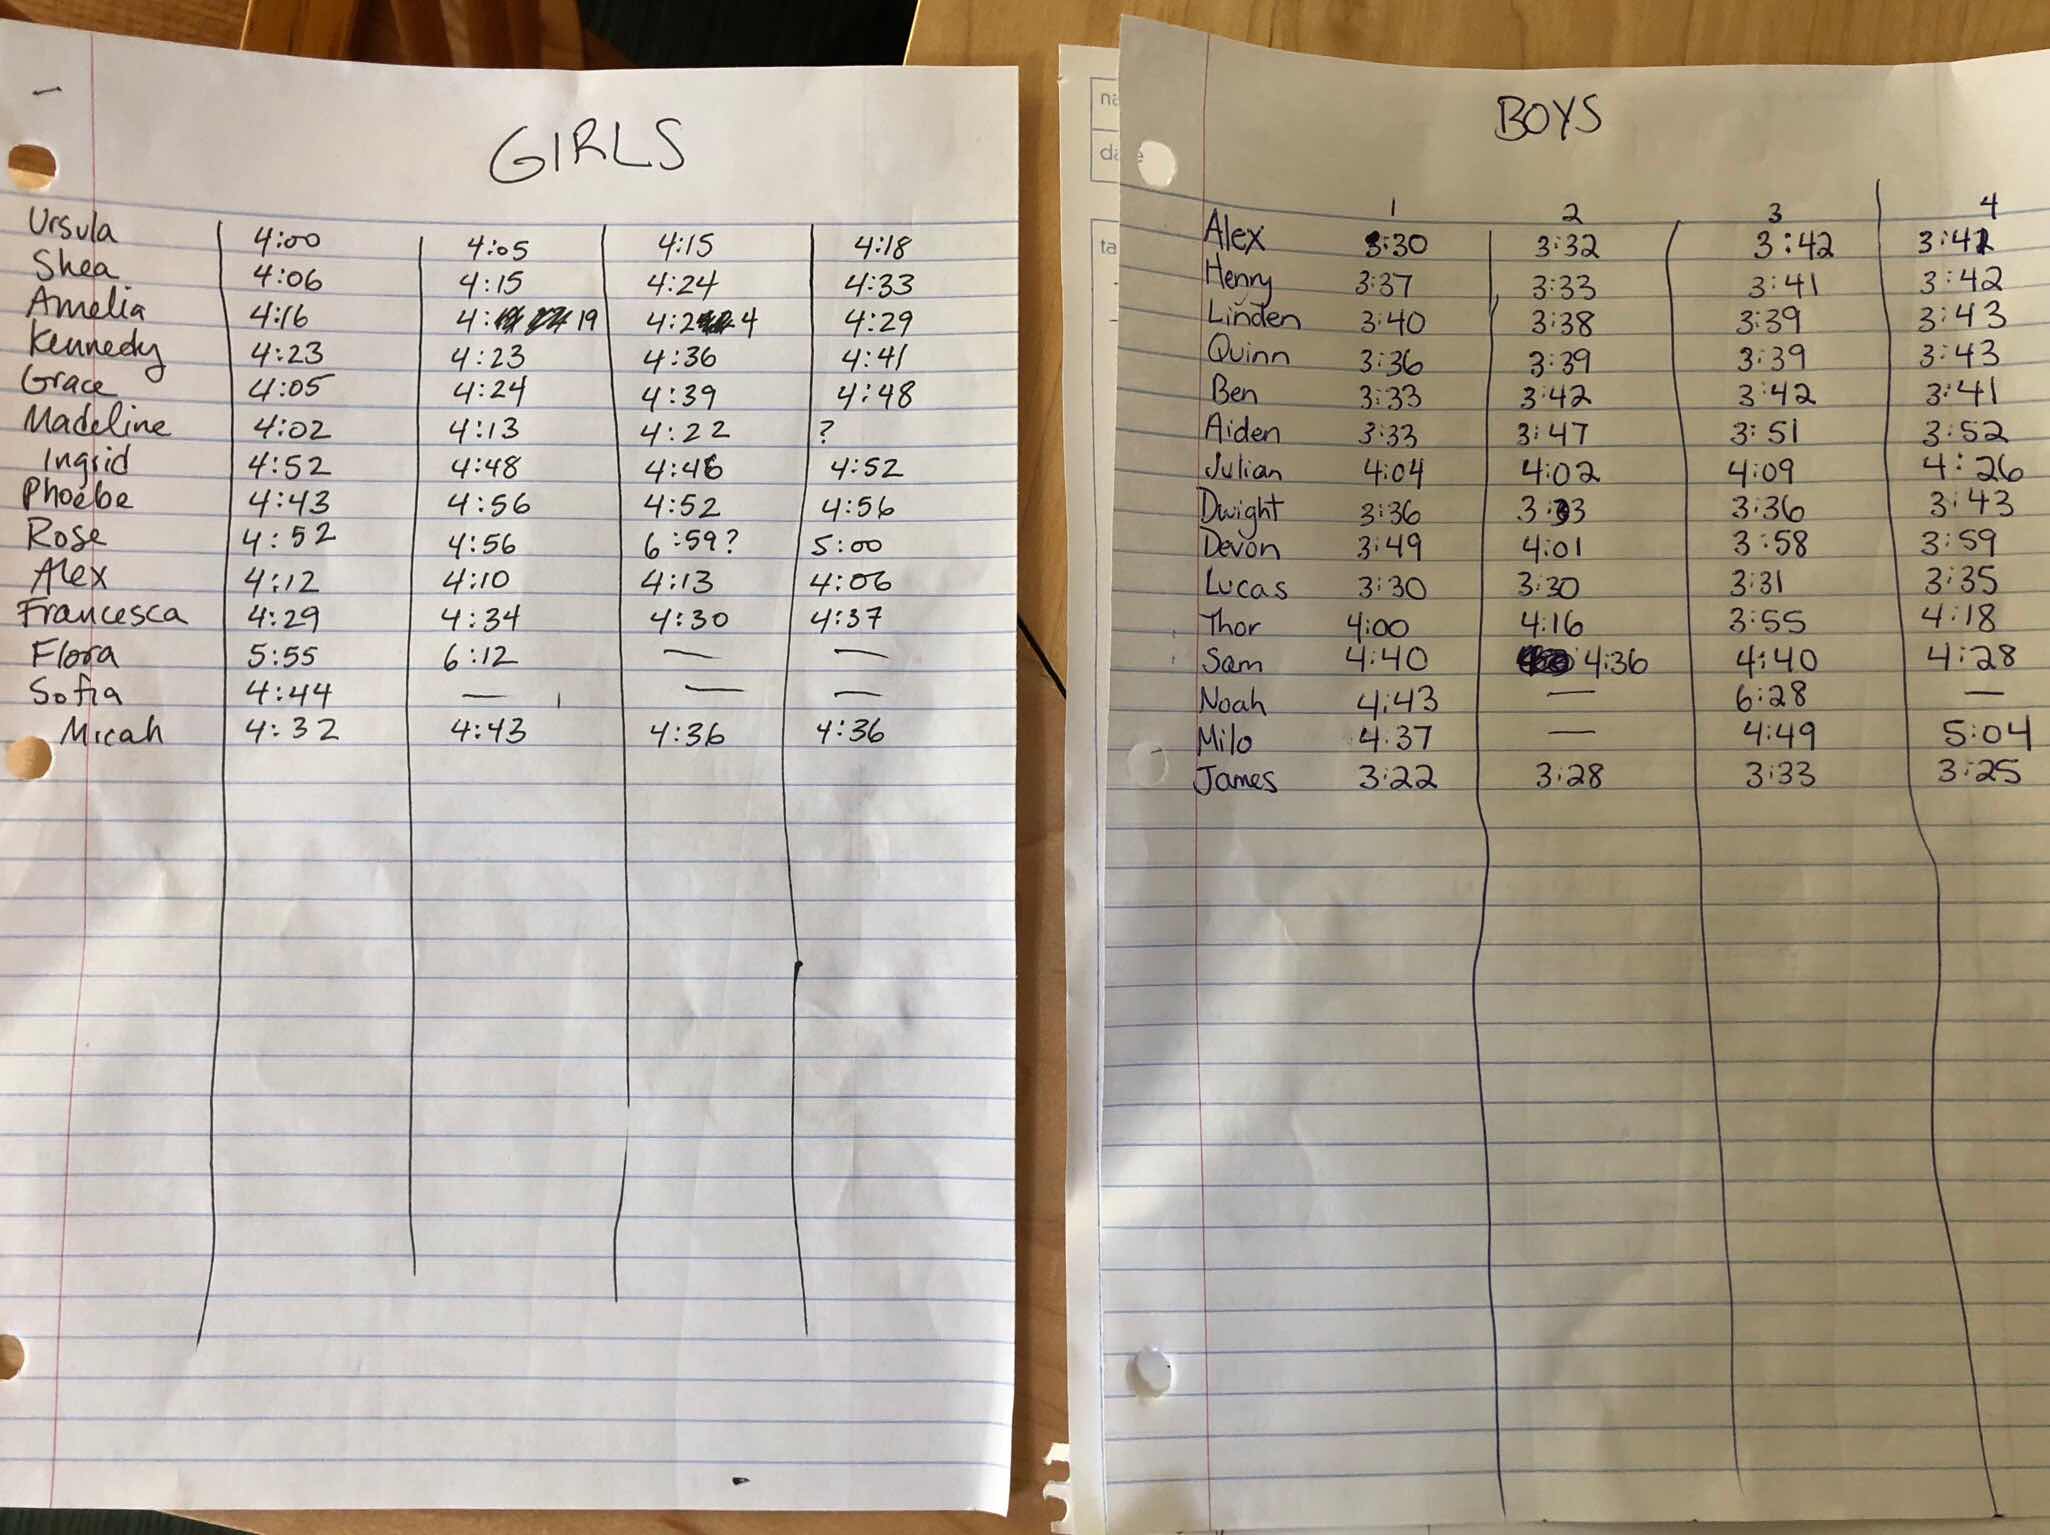 GIRLS
Ursula 4:00 4:05 4:15 4:18
Shea 4:06 4:15 4:24 4:33
Amelia 4:16 4:19 4:24 4:29
Kennedy 4:23 4:23 4:36 4:41
Grace 4:05 4:24 4:39 4:48
Madeline 4:02 4:13 4:22 ?
Ingrid 4:52 4:48 4:46 4:52
Phoebe 4:43 4:56 4:52 4:56
Rose 4:52 4:56 6:59? 5:00
Alex 4:12 4:10 4:13 4:06
Francesca 4:29 4:34 4:30 4:37
Flora 5:55 6:12 — —
Sofia 4:44 — — —
Micah 4:32 4:43 4:36 4:36
na
da
ta
BOYS
1 2 3 4
Alex 3:30 3:32 3:42 
Henry 3:37 3:33 3:41 3:42
Linden 3:40 3:38 3:39 3:43
Quinn 3:36 3:39 3:39 3:43
Ben 3:33 3:42 3:42 3:41
Aiden 3:33 3:47 3:51 3:52
Julian 4:04 4:02 4:09 4:26
Dwight 3:36 3:33 3:36 3:43
Devon 3:49 4:01 3:58 3:59
Lucas 3:30 3:30 3:31 3:35
Thor 4:00 4:16 3:55 4:18
Sam 4:40 4:36 4:40 4:28
Noah 4:43 — 6:28 —
Milo 4:37 — 4:49 5:04
James 3:22 3:28 3:33 3:25